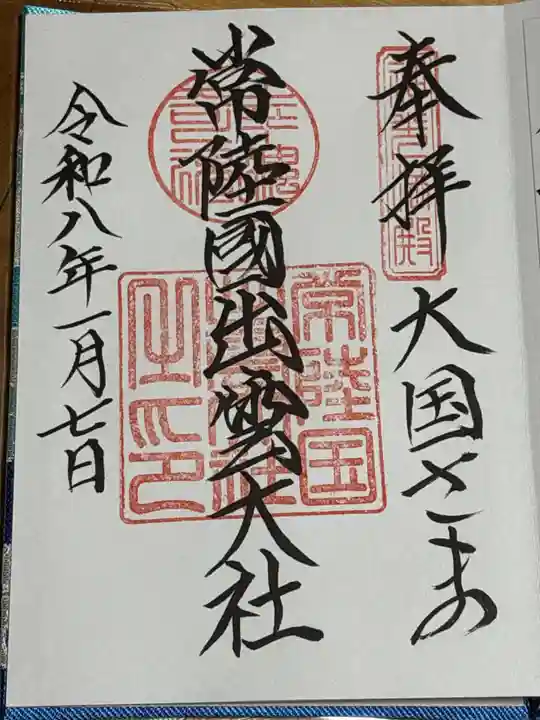 奉拝
大国さまの
常陸國出雲大社
令和八年一月七日
常陸国
出雲大社
之印